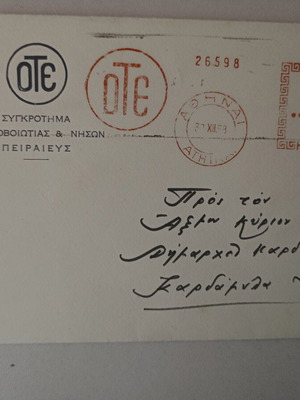 ΟΤΕ
ΣΥΓΚΡΟΤΗΜΑ
ΟΒΟΙΩΤΙΑΣ & ΝΗΣΩΝ
ΠΕΙΡΑΙΕΥΣ
ΟΤΕ
26598
ΑΘΗΝΑΙ
XII
Πρὸς τὸν
Ἀξιον κύριον
Δήμαρχον Καρδ
Καρδάμυλα